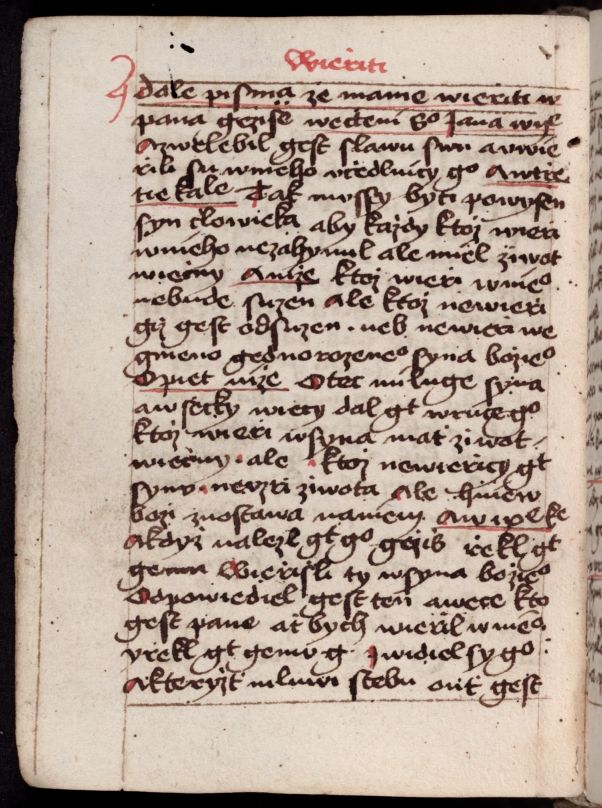 Wieriti
dale pisma ze mame wieriti w
pana gezisse wectenì S° Jana w iiͤ
Azwelebil gest slawu swu a uwie
rili su wnieho ucedlnicy g° Awtrze
tie kale Tak mussy byti powyssen
syn clowieka aby kazdy ktoz wieri
wnieho nezahynul ale miel ziwot
wiecny A nize ktoz wieri wnie°
nebude suzen Ale ktoz newieri
giz gest odsuzen · neb newieri we
gmeno gednorozene° syna bozie°
Opiet nize Otec miluge syna
a wsecky wiecy dal gt wruce g°
ktoz wieri wsyna mat ziwot
wiecny · ale · ktoz newiericy gt
synu · neuzri ziwota Ale hniew
bozi zuostawa naniem A w ix° ka
A kdyz nalezl gt g° gezis rekl gt
gemu Wierisli ty wsyna bozie°
Odpowiediel gest ten a wece kto
gest pane at bych wieril wnie°
y rekl gt gemu g · y widiel sy g° :
A kteryzt mluwi stebu ont gest